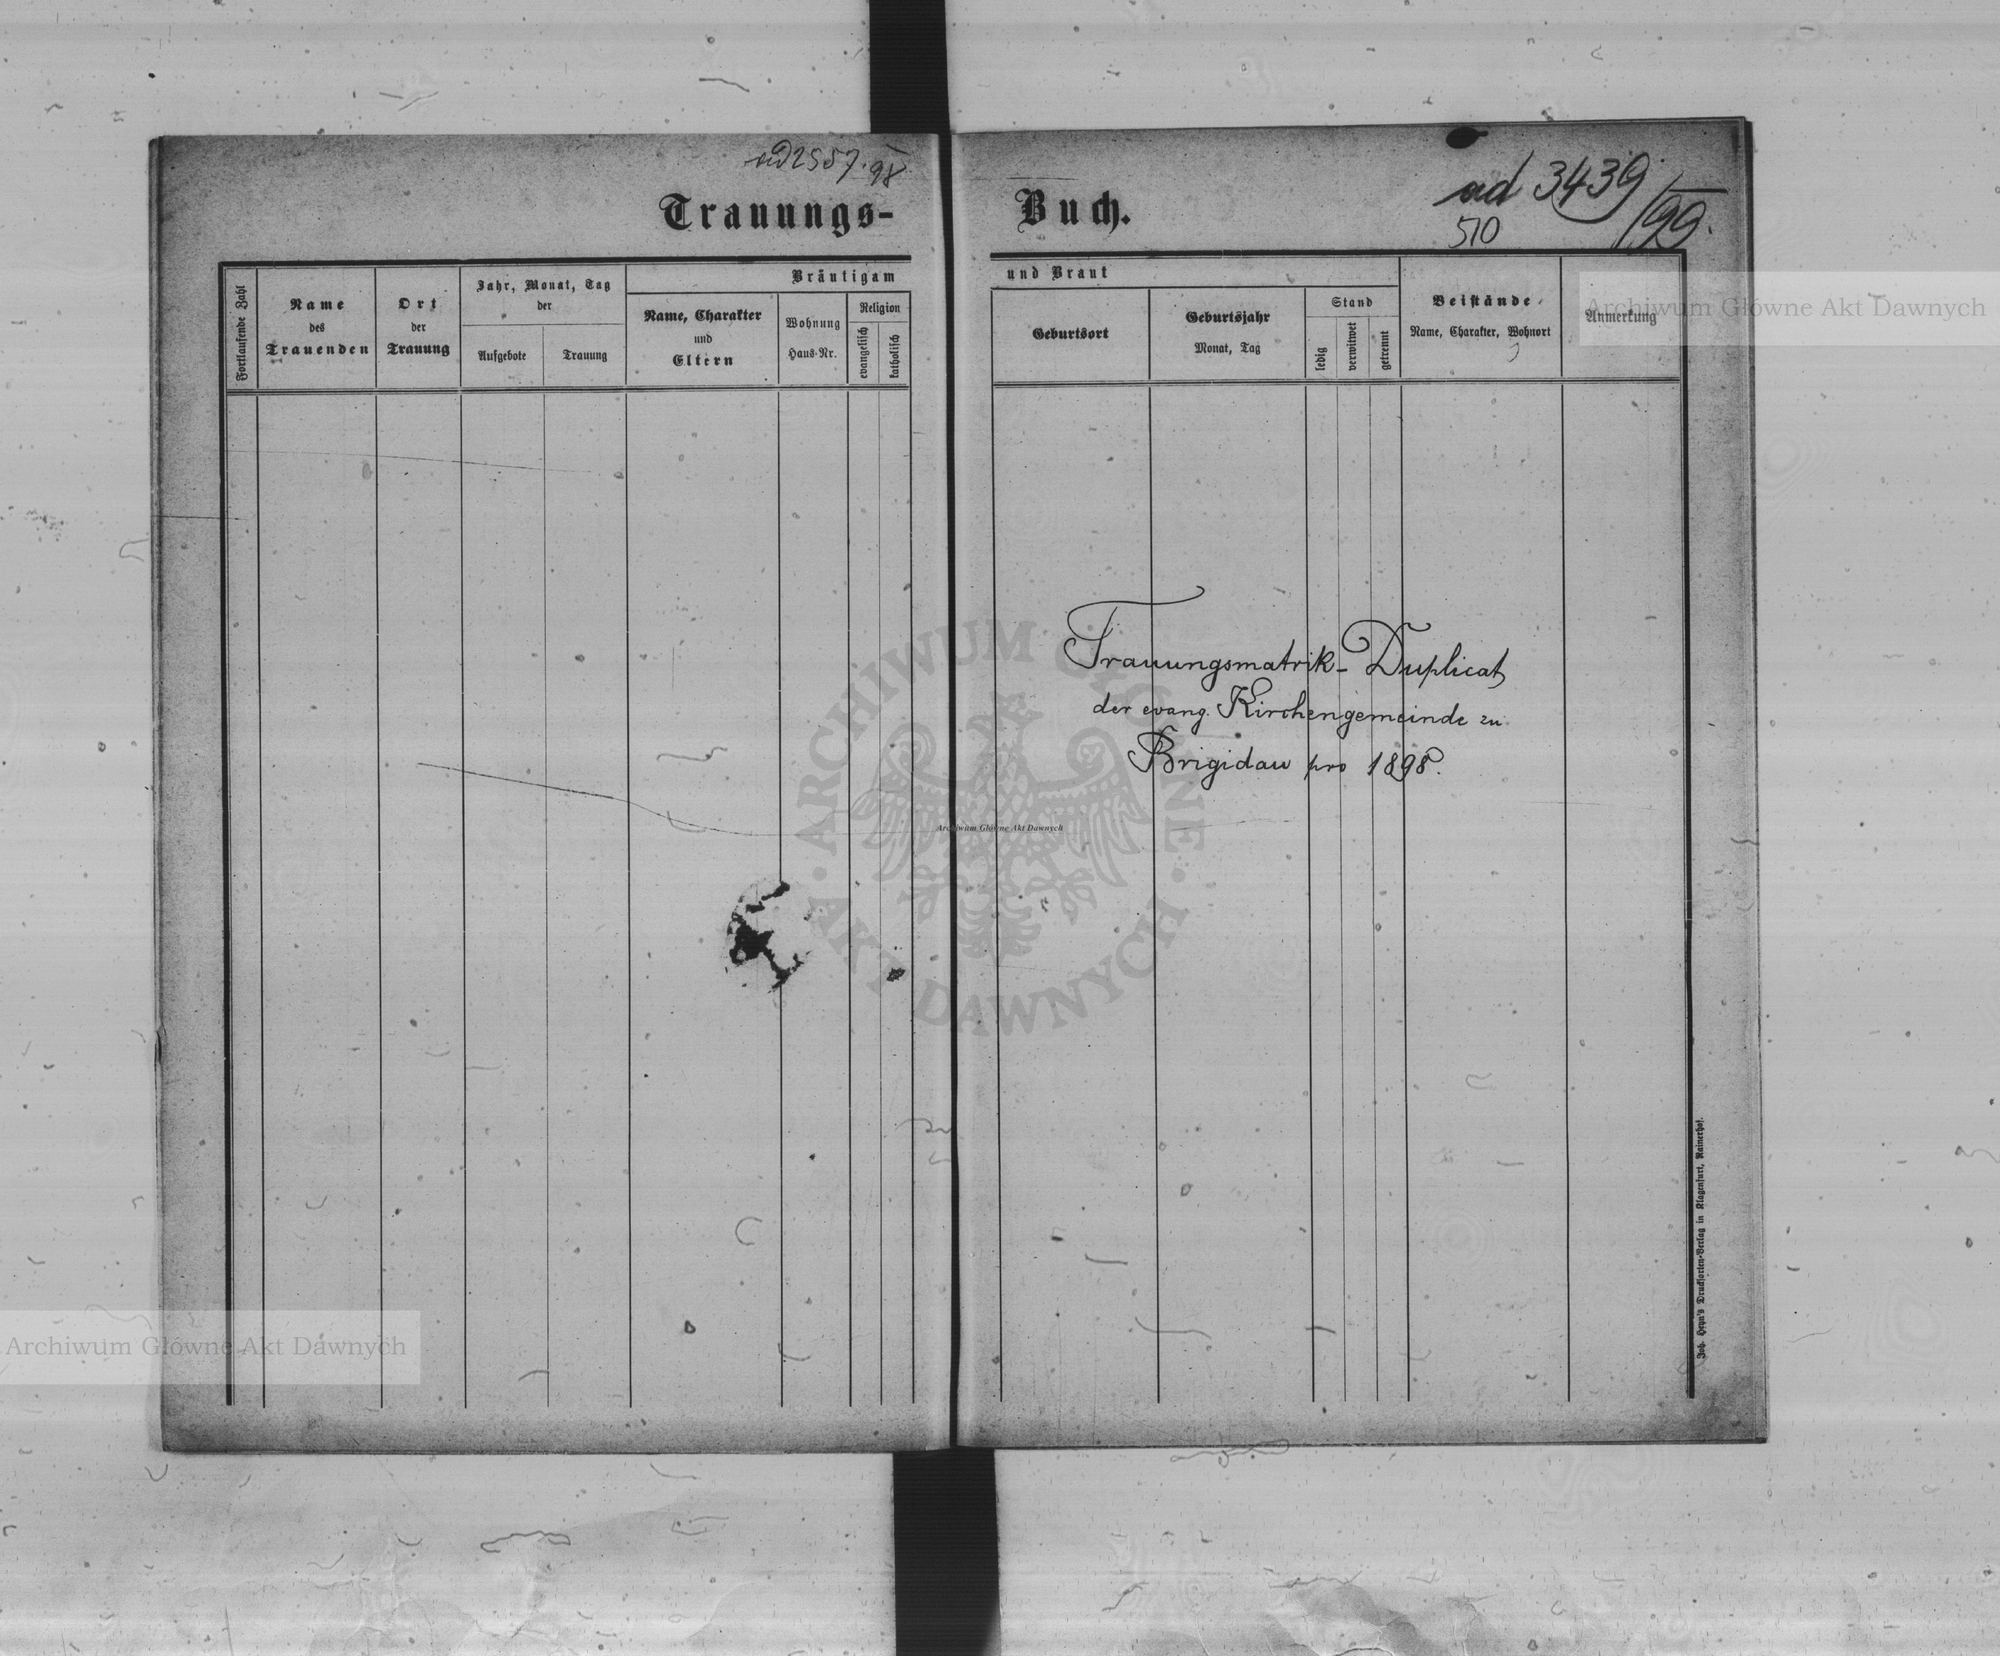 ad 2557. 98
Trauungs-
Fortlaufende Zahl
Name
des
Trauenden
Ort
der
Trauung
Jahr, Monat, Tag
der
Aufgebote
Trauung
Bräutigam
Name, Charakter
und
Eltern
Wohnung
Haus-Nr.
Religion
evangelisch
katholisch
Buch.
ad 3439/99.
510
und Braut
Geburtsort
Geburtsjahr
Monat, Tag
Stand
ledig
verwitwet
getrennt
Beistände
Name, Charakter, Wohnort
Anmerkung
Archiwum Główne Akt Dawnych
Trauungsmatrik-Duplicat
der evang. Kirchengemeinde zu
Brigidau pro 1898.
ARCHIWUM GŁÓWNE
AKT DAWNYCH
Archiwum Główne Akt Dawnych
Joh. Heyn's Drucksorten-Verlag in Klagenfurt, Rainerhof.
Archiwum Główne Akt Dawnych